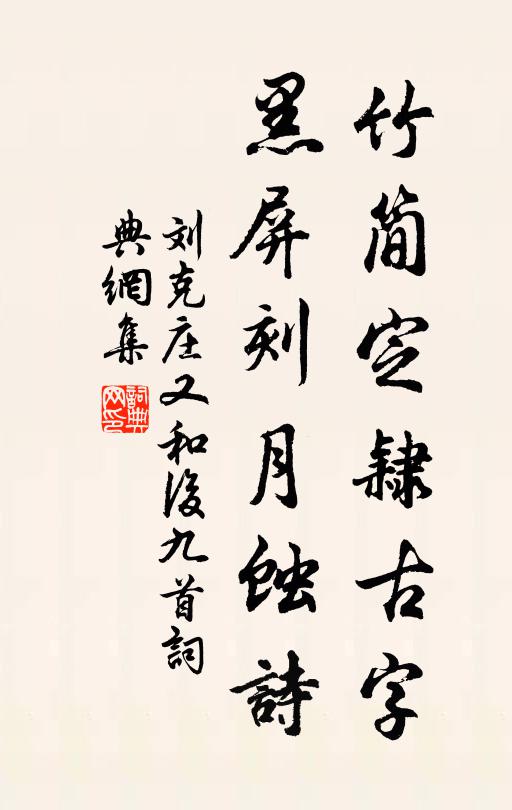 竹简定隸古字
黑屏刻月蝕詩
刘克庄又和後九首詞
典網集
詞典
网印